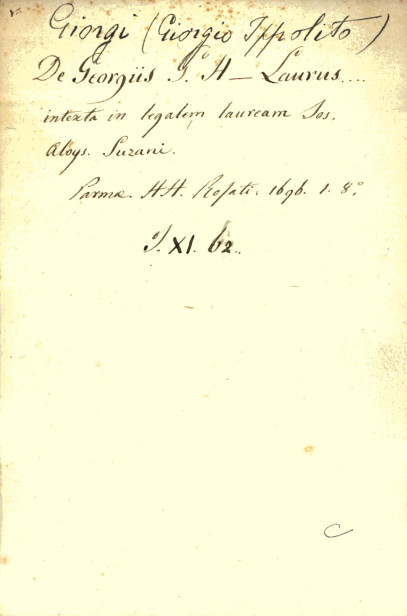 Giorgi (Giorgio Ippolito)
De Georgiis G. H — Laurus....
intexta in legalem lauream Jos.
Aloys. Suzani.
Parmæ. HH. Rosati. 1696. 1. 8.°
J. XI. 62.
C